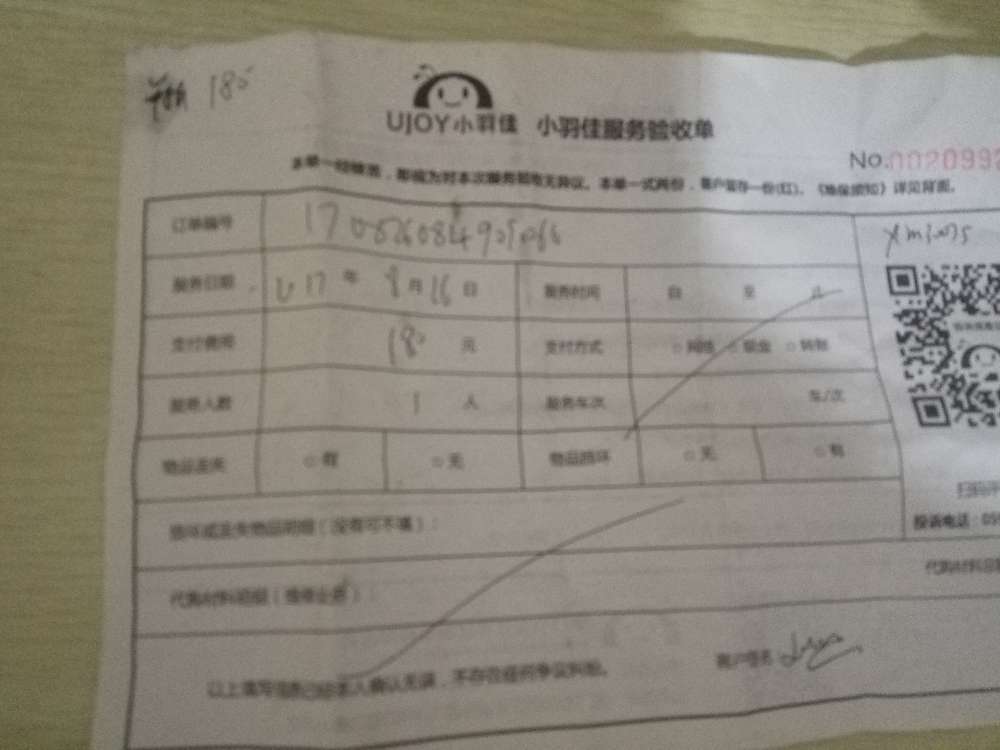 180
UJOY小羽佳 小羽佳服务验收单
No.0020992
本单一经签洽，即视为对本次服务验收无异议。本单一式两份，客户留存一份(红)。《维保须知》详见背面。
订单编号
服务日期 2017 年 8 月 16 日 服务时间 自 至 止
支付费用 180 元 支付方式 ○网络 ○现金 ○转账
服务人数 1 人 服务车次 车/次
物品丢失 ○有 ○无 物品损坏 ○无 ○有
损坏或丢失物品明细（没有可不填）：
代购材料明细（维修业务）：
以上填写信息已经本人确认无误，不存在任何争议纠纷。
客户签名
扫码评
投诉电话：05
代购材料总